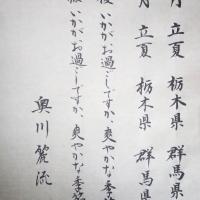 月 立夏 栃木県 群馬県
月 立夏 栃木県 群馬県
いかがお過ごしですか、爽やかな季
いかがお過ごしですか、爽やかな季節
奥川麗流